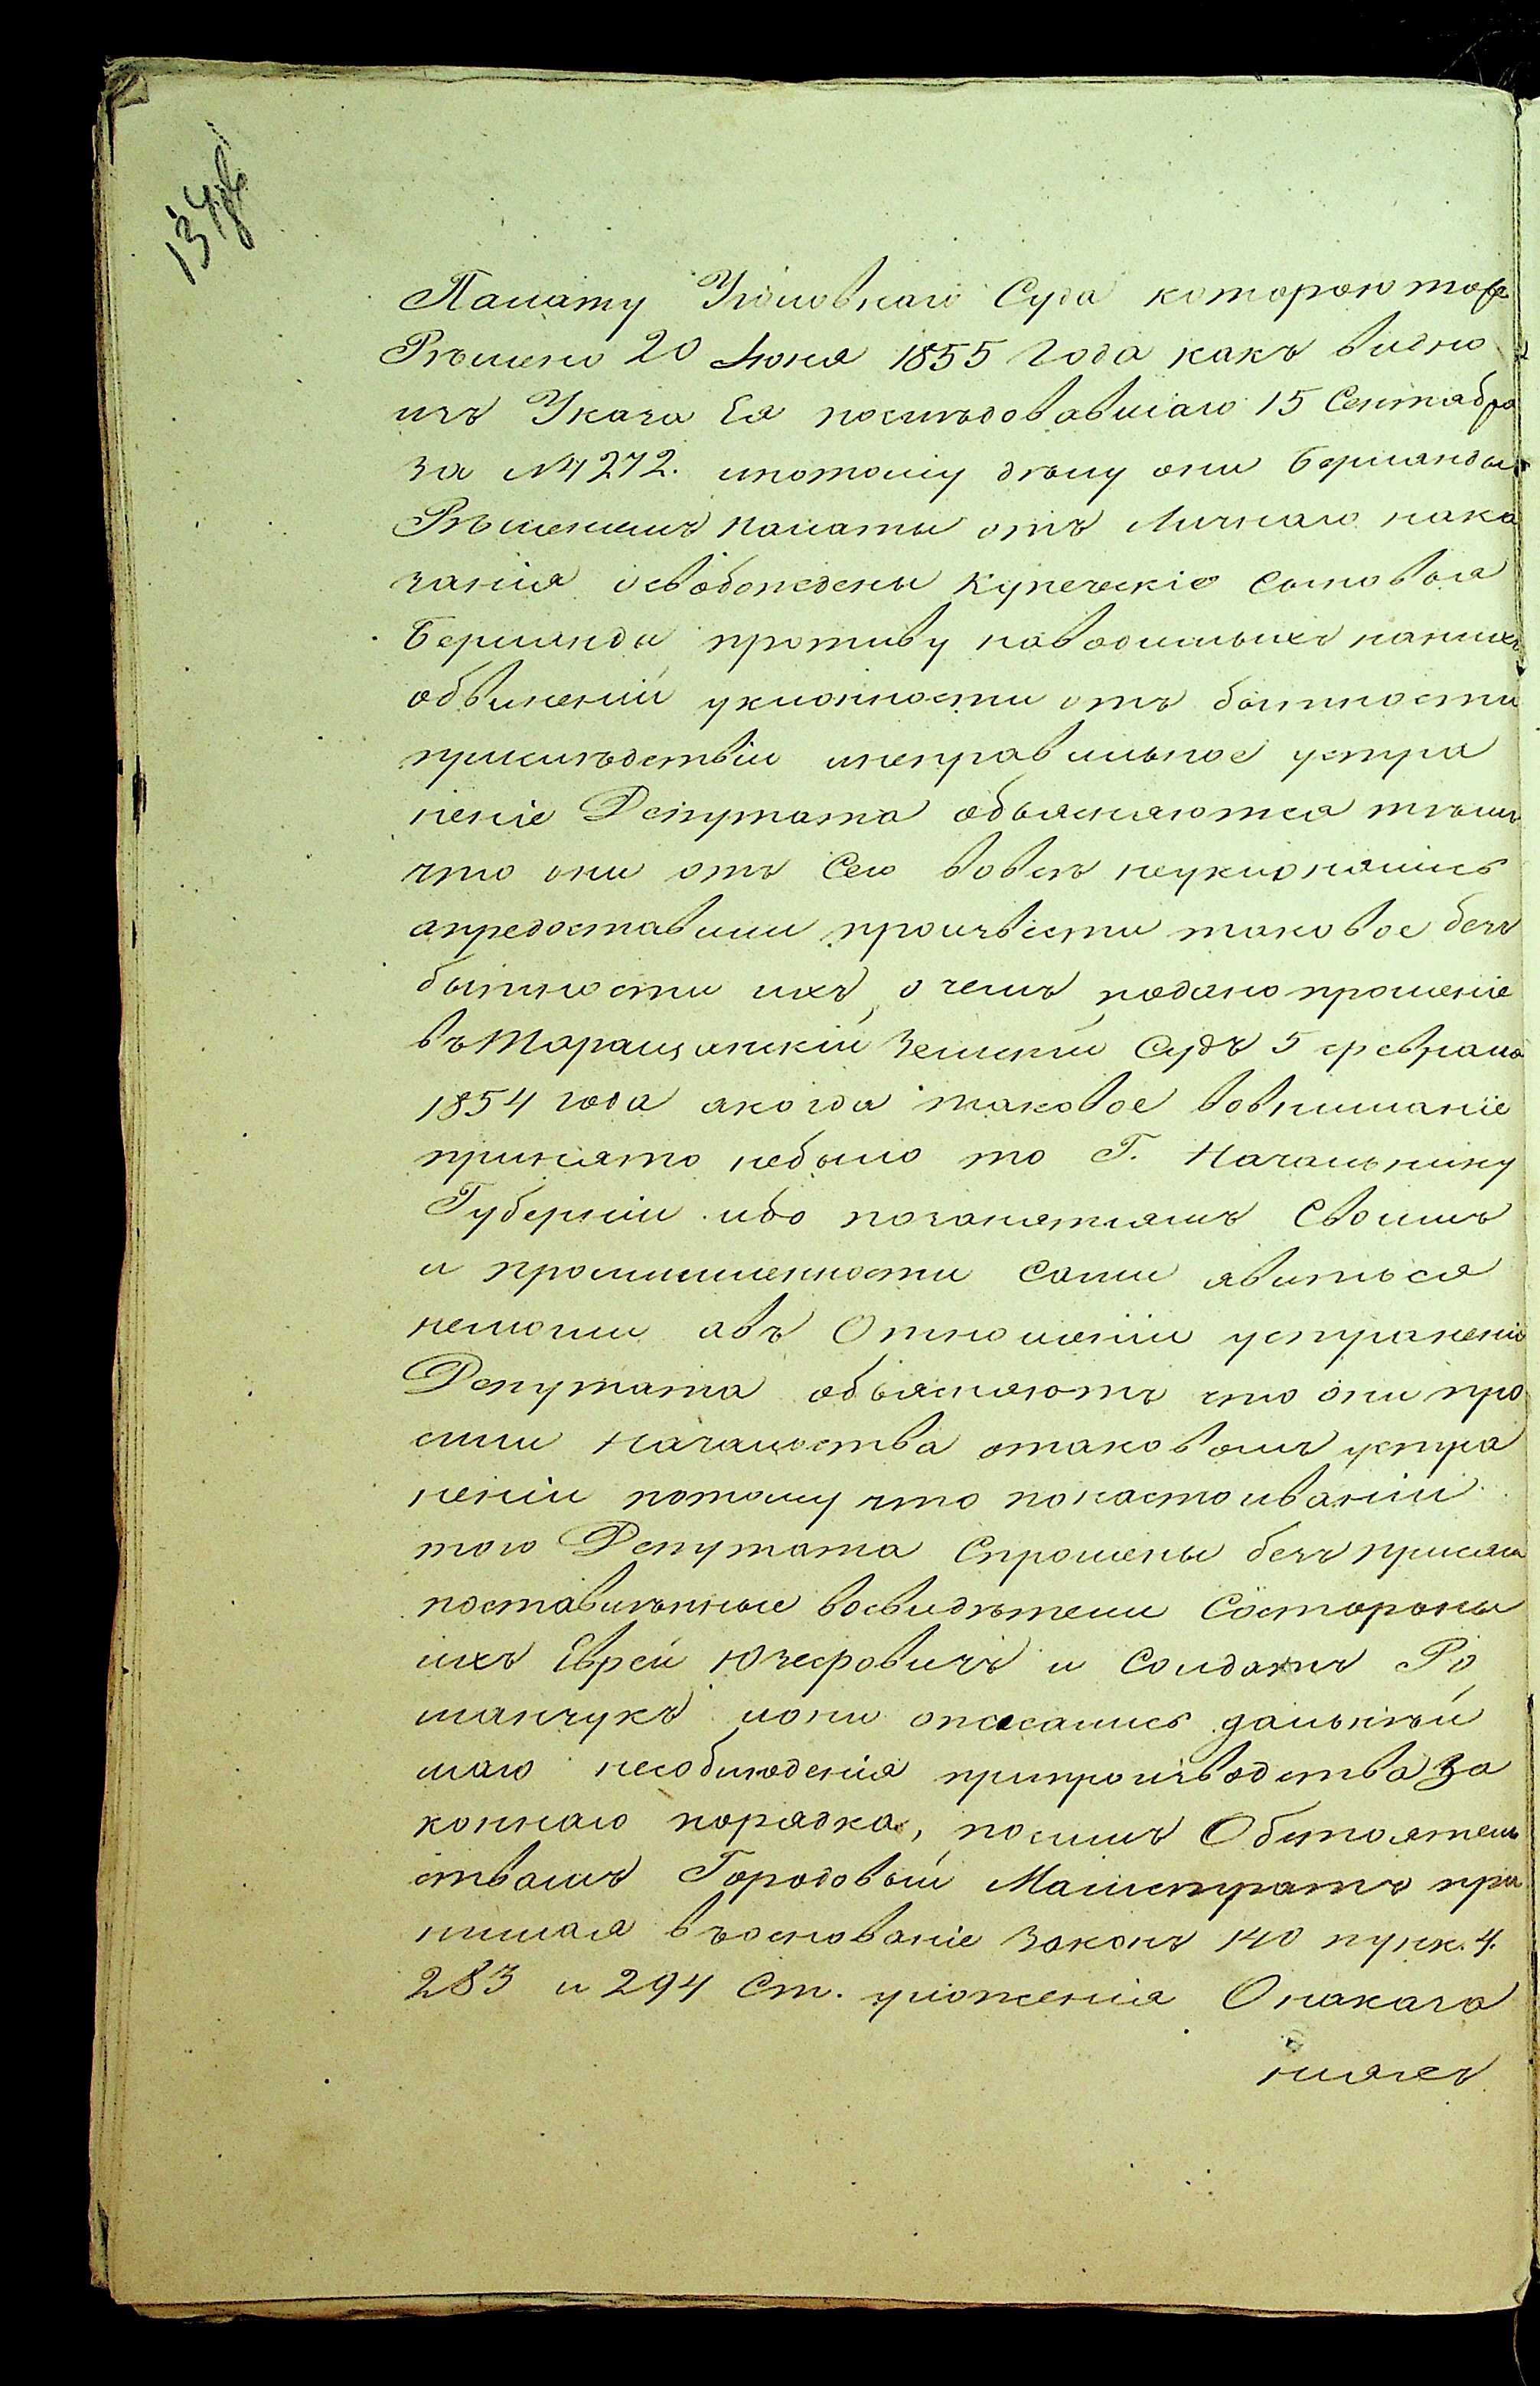 134 об
Палату Уголовнаго Суда которою тоже
Рѣшено 20 Іюня 1855 года какъ видно
изъ Указа Ея послѣдовавшаго 15 Сентября
за № 4272. ипотому дѣлу они Берманды
Рѣшеніемъ Палаты отъ Личнаго нака
занія освобождены Купеческіе Сыновья
Берманды противу наводимыхъ нанихъ
обвиненій уклонности отъ бытности
прислѣдствіи инеправильное устра
неніе Депутата объясняются тѣмъ
что они отъ Сего вовсѣ неуклонялись
апредоставили произвести таковое безъ
бытности ихъ, о чемъ подано прошеніе
въ Таращанскій Земскій Судъ 5 февраля
1854 года акогда таковое вовниманіе
принято небыло то Г. Начальнику
Губерніи ибо позанятіямъ Своимъ
и промышленности Сами явиться
немогли авъ Отношеніи устраненія
Депутата объясняютъ что они про
сили Начальства отаковомъ устра
неніи потому что понастоиваніи
того Депутата Спрошены безъ присяги
поставленные восвидѣтели Состороны
ихъ Еврей Юзефовичъ и Солдатъ Ро
манчукъ иони опасались дальнѣй
шаго несоблюденія припроизводства За
коннаго порядка, посимъ Обстоятель
ствамъ Городовый Магистратъ при
нимая въоснованіе Законъ 140 пунк. 4.
283 и 294 Ст. уложенія Онаказа
ніяхъ